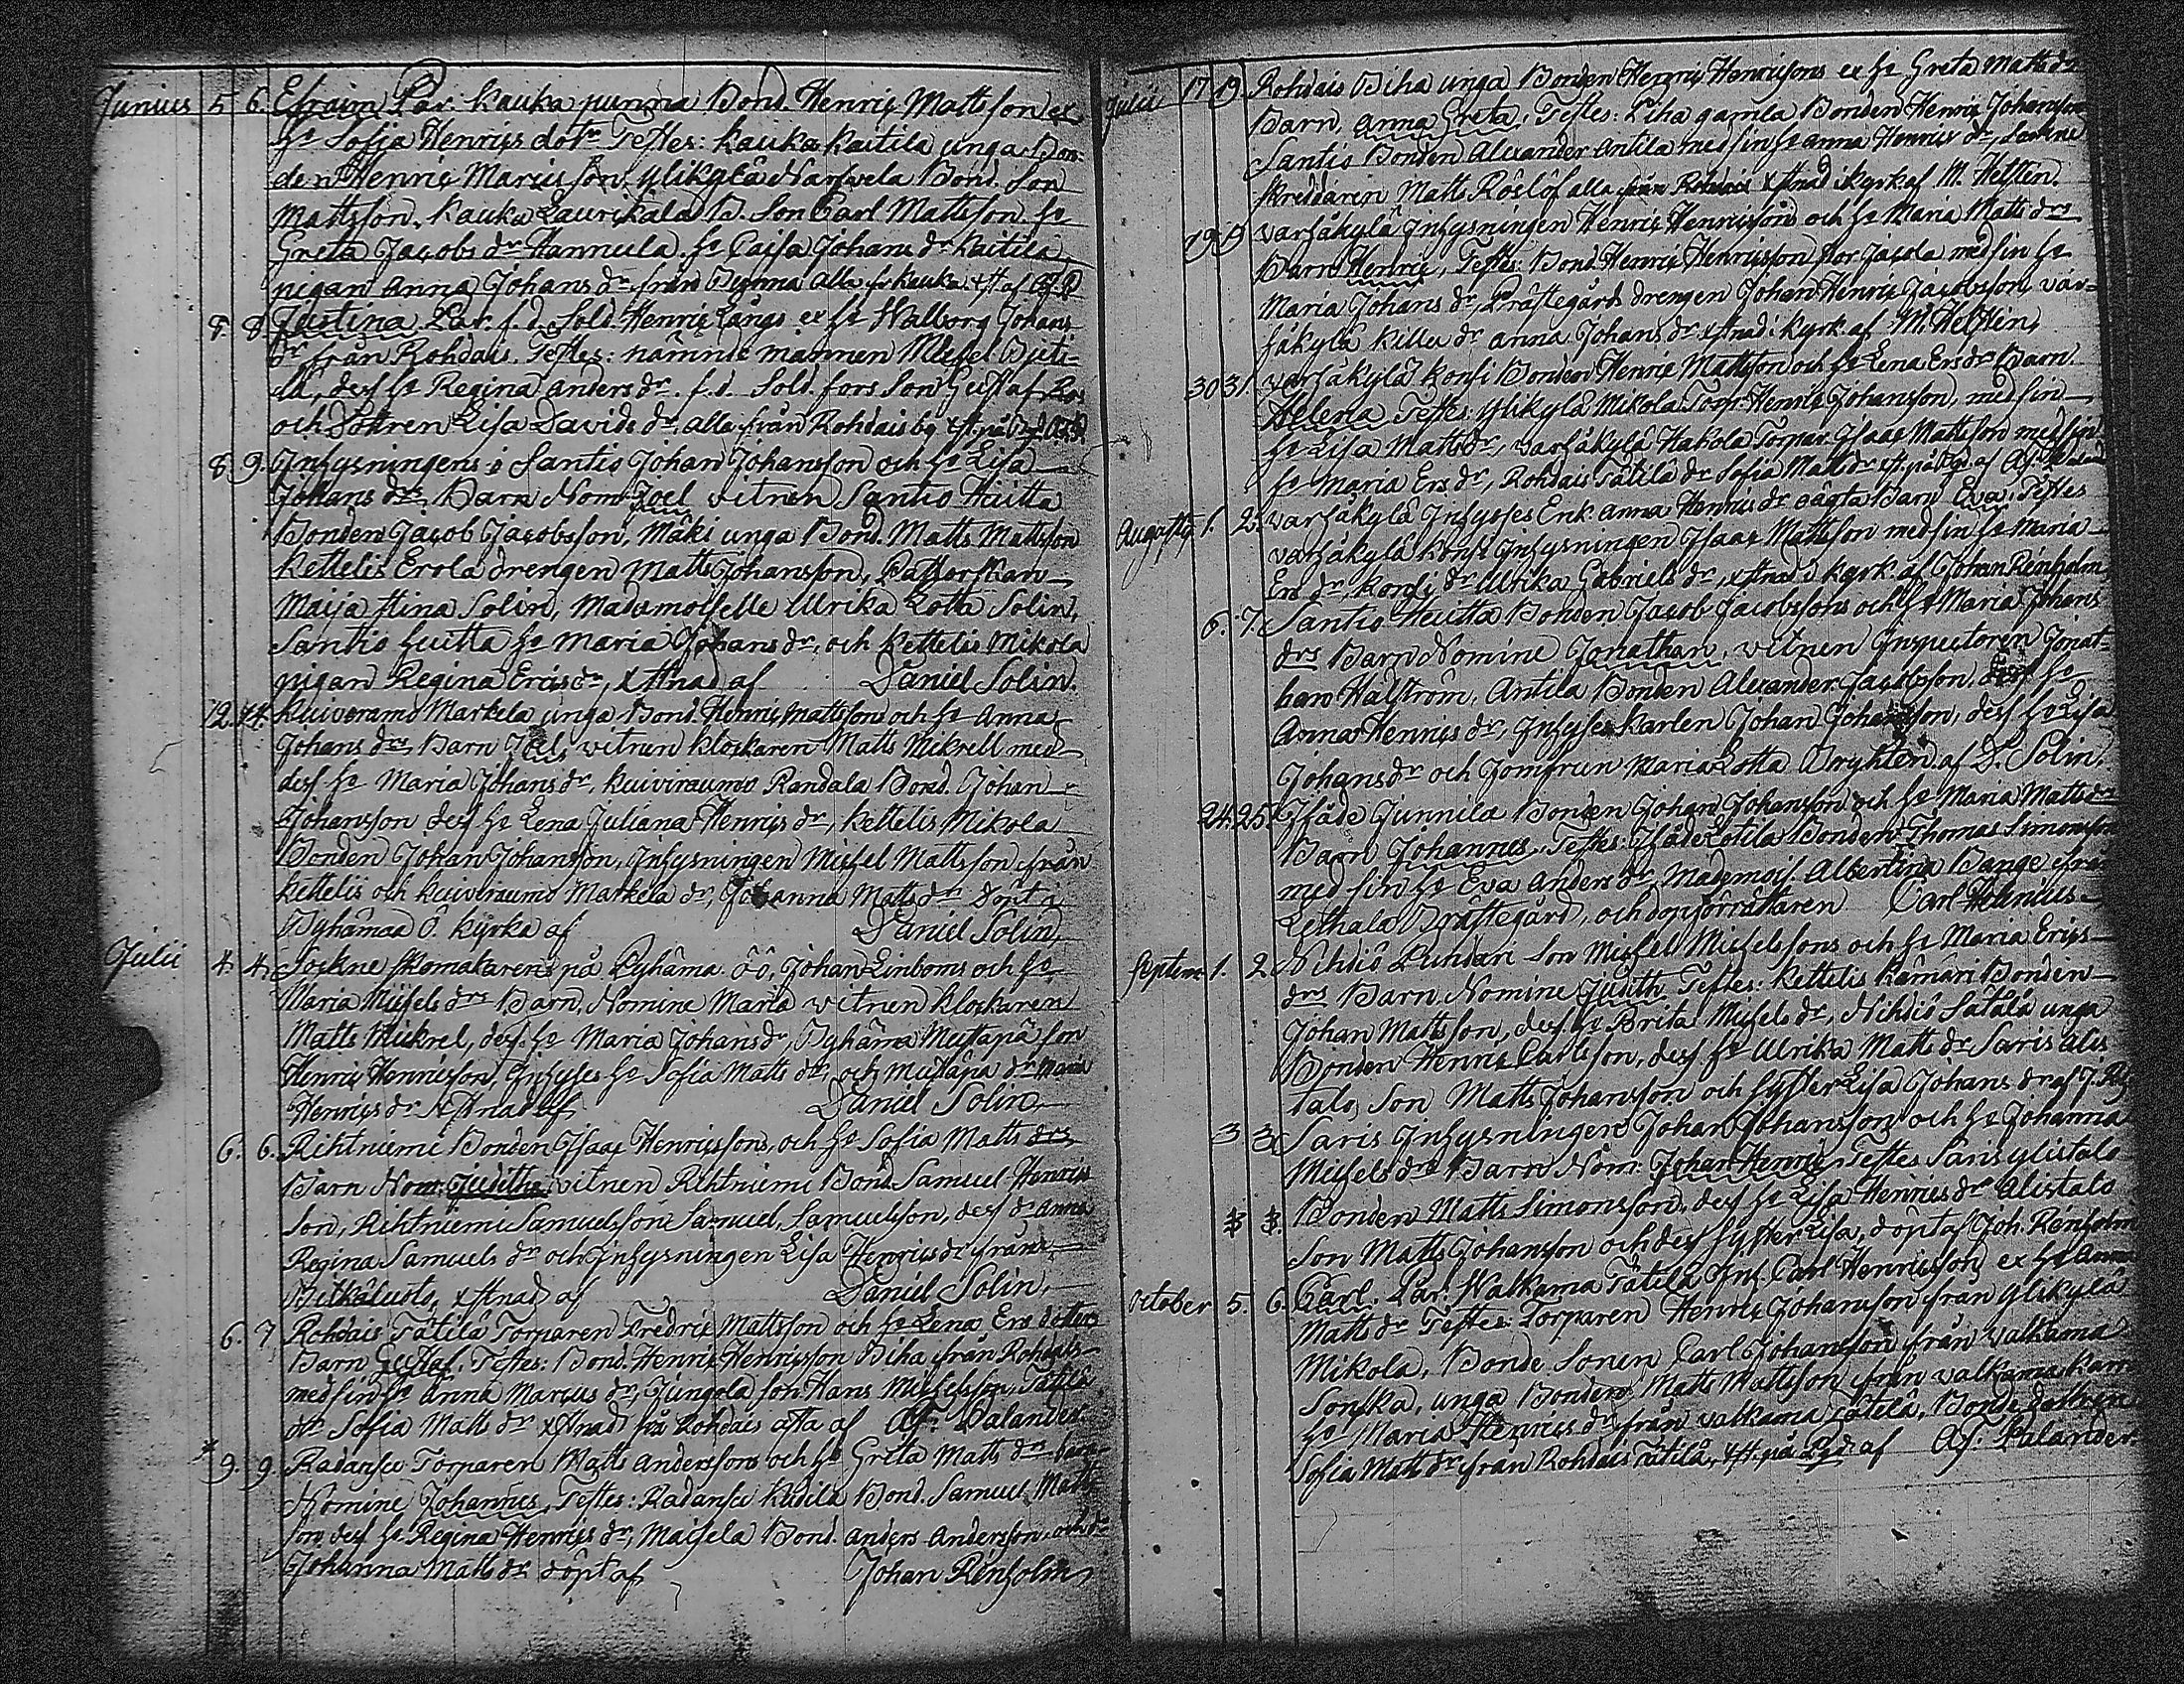 Junius 5 6. Efraim Par. Kauka junna Bond. Henric Mattsson ex
Hu Sofia Henrics dotr Testes: Kauka Kaitila unga Bon-
den Henric Marcusson, Ylikylä Nar vela Bond. Son
Mattsson, Kauka Laurikala B. Son Carl Mattsson. Hu
Greta Jacobs dr Hannula. Hu Caisa Johans dr Kaitila,
pigan Anna Johans dr från Pyhma alla fr Kauka
8. 8. Justina. Par. f.d. Sold. Henric Långs ex Hu Walborg Johans
dr från Rohdais. Testes: nämnde mannen Michel Pieti-
lä, dess Hu Regina Anders dr. f.d. Sold. fors Son Gustaf Ros
och Dottren Lisa Davids dr, alla från Rohdais by
8 9. Inhysningens i Santio Johan Johansson och Hu Lisa
Johans drs Barn Nom Joel vitnen Santio Huitta
Bonden Jacob Jacobsson, Mäki unga Bond. Matts Mattsson
Kettelis Erola drengen Matts Johansson, Pastorskan
Maija Stina Solin, Mademoiselle Ulrika Lotta Solin,
Santio Huitta Hu Maria Johans dr, och Kettelis Mikola
pigan Regina Erics dr, xstnad af Daniel Solin.
12. 14. Kuiviraumo Markela unga Bond. Henric Mattsson och Hu Anna
Johans drs Barn Joel, vitnen klockaren Matts Mikrell med
dess Hu Maria Johans dr, Kuiviraumo Randala Bond. Johan
Johansson dess Hu Lena Juliana Henrics dr, Kettelis Mikola
Bonden Johan Johansson, Inhysningen Michel Mattsson från
Kettelis och Kuiviraumo Markela dr, Johanna Matts dr döpt i
Pyhämaa Ö. kyrka af Daniel Solin
Julii 4. 4. Sockne skomakarens på Pyhäma öö, Johan Linboms och Hu
Maria Michels drs Barn, Nomine Maria vitnen klockaren
Matts Mikrel, dess Hu Maria Johans dr, Pyhäma Mustapä son
Henric Henricsson, Inhyses Hu Sofia Matts dr, och Mustapä dr Maria
Henrics dr xstnad af Daniel Solin
6. 6. Rihtniemi Bonden Isaac Henricssons, och Hu Sofia Matts drs
Barn Nom: Juditha vitnen Rihtniemi Bond. Samuel Henrics
son, Rihtniemi Samuelsson Samuel Samuelsson, dess dr Anna
Regina Samuels dr och Inhysningen Lisa Henrics dr från
Pitkäluoto, xstnad af Daniel Solin,
6. 7. Rohdais Tätilä Torparen Fredric Mattsson och Hu Lena Ers dotters
Barn Gustaf. Testes: Bond. Henric Henricsson Piha från Rohdais
med sin Hu Anna Marcus dr, Jungola son Hans Michelsson, Tätilä
dr Sofia Matts dr xstnad på Rohdais af Palander
9. 9. Radansu Torparen Matts Anderssons och Hu Greta Matts drs barn
Nomine Johannes, Testes: Radansu Kutila Bond. Samuel Matts
son, dess Hu Regina Henrics dr, Maisela Bond. Anders Andersson, och dr
Johanna Matts dr döpt af Johan Renholm
Julii 17 19. Rohdais Piha unga Bonden Henric Henricssons ex Hu Greta Matts dr
Barn, Anna Greta. Testes: Piha gamla Bonden Henric Johansson
Santio Bonden Alexander Antila med sin Hu Anna Henrics dr, Sockne
skreddaren Matts Röslöf alla från Rohdais xstnad i kyrk. af M. Helsten.
19 19 Varhäkylä Inhysningen Henric Henricsson och Hu Maria Matts drs
Barn Henric, Testes: Bond. Henric Henricsson stor Jacola med sin Hu
Maria Johans dr, Prästegårds drengen Johan Henric Jacobsson, var-
häkylä Killu dr Anna Johans dr xstnad i kyrk. af M. Helsten,
30 31. Varhäkylä Konsi Bonden Henric Mattsson och Hu Lena Ers drs Barn.
Helena Testes: Ylikylä Mikola Torp. Henric Johansson, med sin
Hu Lisa Matts dr, Varhäkylä Hakola Torpar. Isaac Mattsson med sin
Hu Maria Ers dr, Rohdais Tätilä dr Sofia Matts dr
Augusty 1. 2. Varhäkylä Inhyses Enk. Anna Henrics dr oägta Barn Eva. Testes
Varhäkylä Konsi Inhysningen Isaac Mattsson med sin Hu Maria
Ers dr, Konsi dr Ulrika Gabriels dr, xstnad i kyrk. af Johan Renholm
6. 7. Santio Huitta Bonden Jacob Jacobssons och Hu Maria Johans
drs Barn Nomine Jonathan, vitnen Inspectoren Jonat-
han Halström, Antila Bonden Alexander Jacobsson, dess Hu
Anna Henrics dr, Inhyses karlen Johan Johansson, dess Hu Lisa
Johans dr och Jomfrun Maria Lotta Oryhten af D. Solin.
24. 25. Ihåde Junnila Bonden Johan Johansson och Hu Maria Matts drs
Barn Johannes. Testes: Ihåde Lotila Bonden Thomas Simonsson
med sin Hu Eva Anders dr, Mademois. Albertina Bange från
Lethala Prästegård, och dopförrättaren Carl Helenius
Septem. 1. 2. Nihdiö Pundari Son Michel Michelssons och Hu Maria Erics
drs Barn. Nomine Judith Testes: Kettelis Kämäri Bonden
Johan Mattsson, dess Hu Brita Michels dr, Nihdiö Sätälä unga
Bonden Henric Carlsson, dess Hu Ulrika Matts dr Saris Alis
talo Son Matts Johansson och syster Lisa Johans dr af J.
3 3. Saris Inhysningen Johan Johansson och Hu Johanna
Michels drs Barn Nom: Johan Henric, Testes Saris ylistalo
Bonden Matts Simonsson, dess Hu Lisa Henrics dr Alistalo
Son Matts Johansson och dess syster Lisa, döpt af Joh. Renholm
October 5. 6. Carl. Par. Walkama Tätilä Inh. Carl Henricsson ex Hu Anna
Matts dr Testes: Torparen Henric Johansson från Ylikylä
Mikola, Bonde Sonen Carl Johansson från Valkama
Sonska, unga Bonden Matts Mattsson från Valkama
Hu Maria Henrics dr från Valkama Tätilä, Bonde dottren
Sofia Matts dr från Rohdais Tätilä, af Palander.